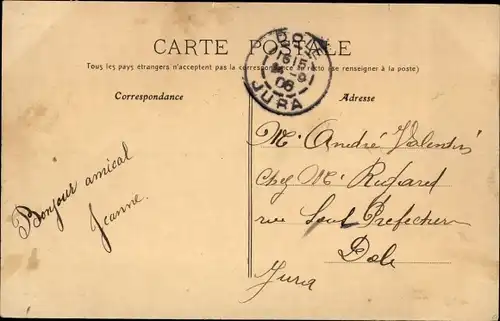 CARTE POSTALE
Tous les pays étrangers n'acceptent pas la correspondance au recto (se renseigner à la poste)
Correspondance
Adresse
DOLE
06
JURA
Bonjour amical
Jeanne.
Mr André Valentin
chez Mr Richard
rue Sous Préfecture
Dole
Jura